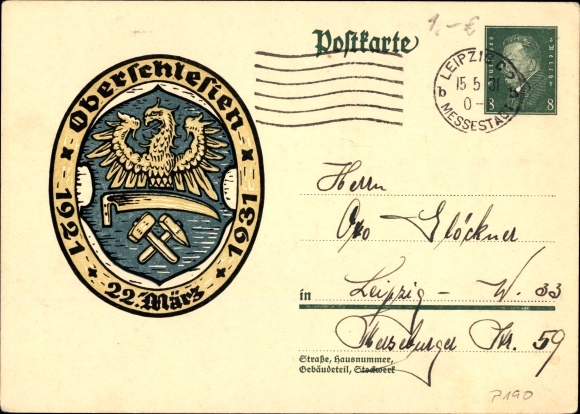 1.-€
Postkarte
DEUTSCHES REICH
8 8
LEIPZIG C2
b 15.5.31 b
0-
MESSESTADT
Oberschlesien
1921 1931
22. März
Herrn
Otto Glöckner
in Leipzig - W. 33
Merseburger Str. 59
Straße, Hausnummer,
Gebäudeteil, Stockwerk
P190